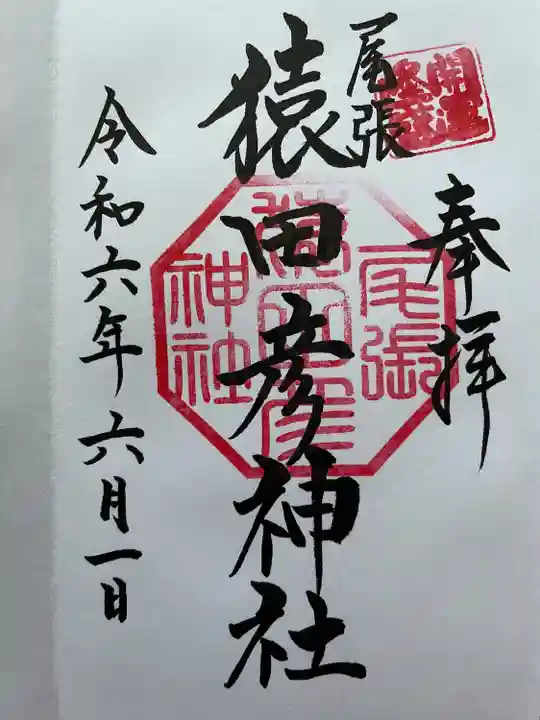 開運
奉拝
尾張
猿田彦神社
尾張
猿田彦
神社
令和六年六月一日